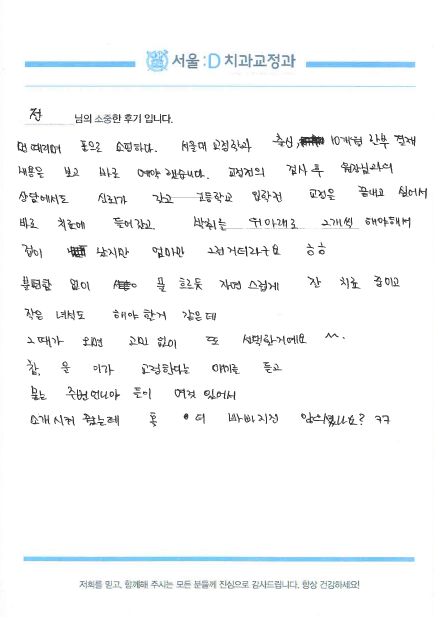 서울:D 치과교정과
전 님의 소중한 후기 입니다.
먼 때리며 폰으로 쇼핑하다. 서울대 교정학과 출신, 10개월 할부 결제
내용을 보고 바로 예약 했습니다. 교정전의 검사 후 원장님과의
상담에서도 신뢰가 갔고 고등학교 입학전 교정은 끝내고 싶어서
바로 치료에 들어갔고 발치는 위아래로 2개씩 해야해서
겁이 났지만 엄마만 그런거더라구요 ㅎㅎ
불편함 없이 물 흐르듯 자연스럽게 잔 치료 중이고
작은 녀석도 해야 할거 같은데
그때가 오면 고민 없이 또 선택할거에요 ^^.
참, 울 이가 교정한다는 얘기를 듣고
묻는 주변언니야 들이 여럿 있어서
소개시켜 줬는데 통 더 바빠지진 않으셨나요? ㅋㅋ
저희를 믿고, 함께해 주시는 모든 분들께 진심으로 감사드립니다. 항상 건강하세요!